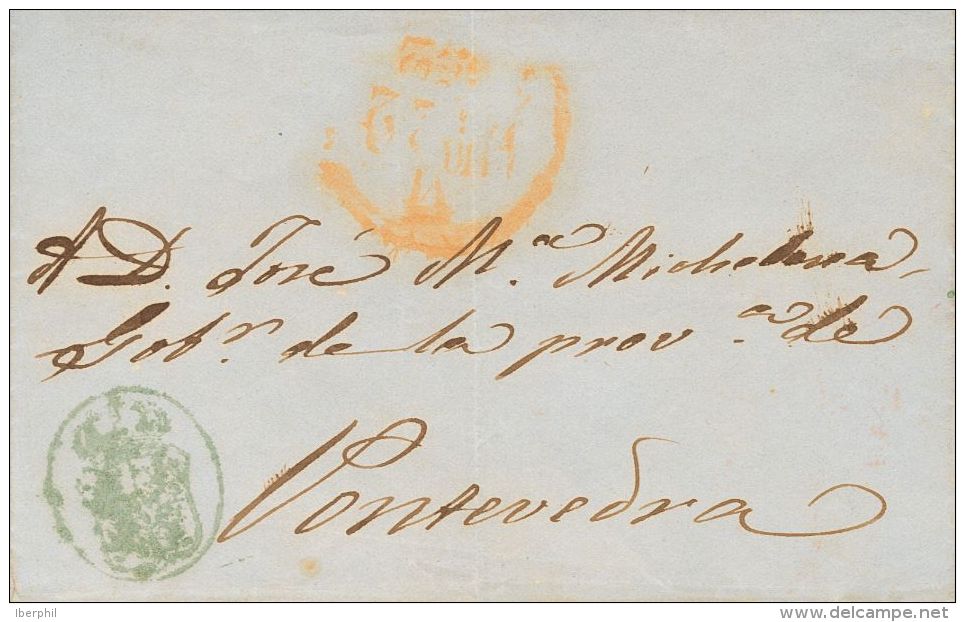 A D. José M.ª Michelena
Gob.r de la prov.ª de
Pontevedra
Iberphil
delcampe.net